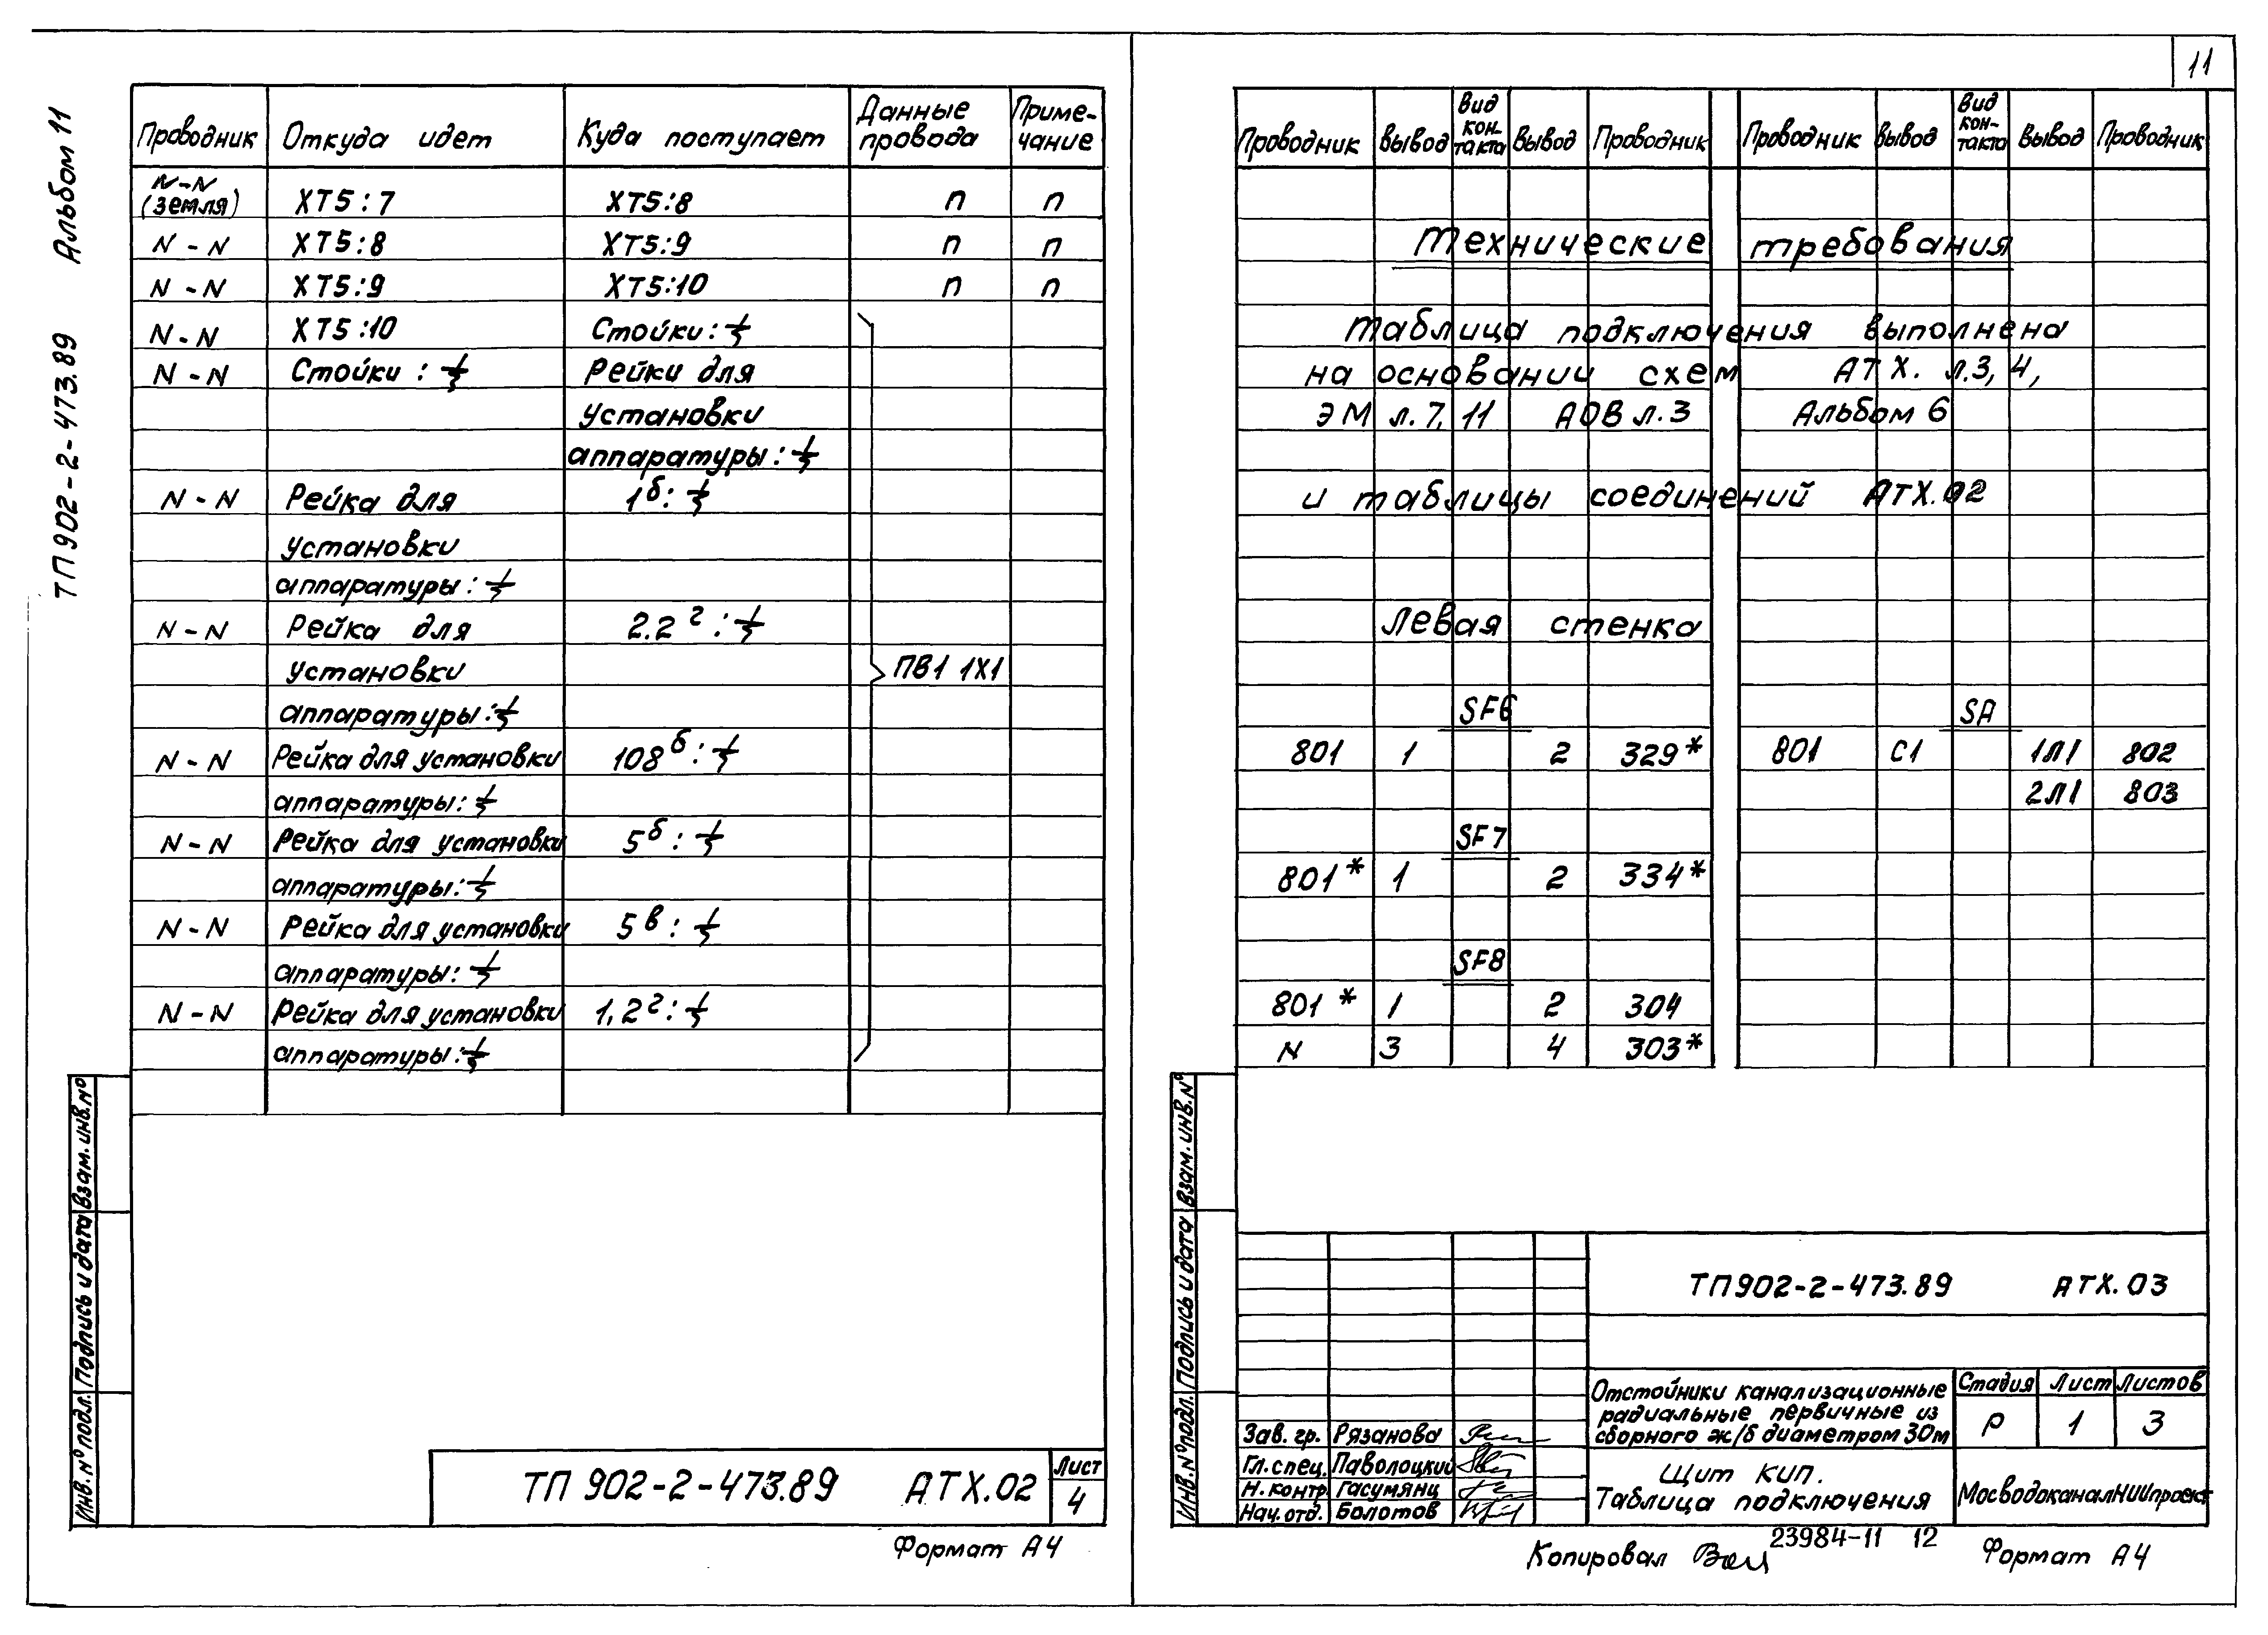 11
Альбом 11
ТП902-2-473.89
Проводник Откуда идет Куда поступает Данные провода Приме-чание
N-N (земля) ХТ5:7 ХТ5:8 п п
N-N ХТ5:8 ХТ5:9 п п
N-N ХТ5:9 ХТ5:10 п п
N-N ХТ5:10 Стойки:⏚
N-N Стойки:⏚ Рейки для
установки
аппаратуры:⏚
N-N Рейка для 1б:⏚
установки
аппаратуры:⏚
N-N Рейка для 2.2г:⏚
установки ПВ1 1Х1
аппаратуры:⏚
N-N Рейка для установки 108б:⏚
аппаратуры:⏚
N-N Рейка для установки 5б:⏚
аппаратуры:⏚
N-N Рейка для установки 5в:⏚
аппаратуры:⏚
N-N Рейка для установки 1,2г:⏚
аппаратуры:⏚
Инв.№подл. Подпись и дата Взам.инв.№
ТП 902-2-473.89 АТХ.02
Лист
4
Формат А4
Проводник Вывод Вид кон-такта Вывод Проводник Проводник Вывод Вид кон-такта Вывод Проводник
Технические требования
Таблица подключения выполнена
на основании схем АТХ. л.3,4,
ЭМ л.7,11 АОВ л.3 Альбом 6
и таблицы соединений АТХ.02
Левая стенка
SF6 SA
801 1 2 329* 801 С1 1Л1 802
2Л1 803
SF7
801* 1 2 334*
SF8
801* 1 2 304
N 3 4 303*
Инв.№подл. Подпись и дата Взам.инв.№
ТП902-2-473.89 АТХ.03
Отстойники канализационные
радиальные первичные из
сборного ж/б диаметром 30м
Стадия Лист Листов
Р 1 3
Зав. гр. Рязанова
Гл.спец. Паволоцкий
Н.контр. Гасумянц
Нач.отд. Болотов
Щит КИП.
Таблица подключения
МосводоканалНИИпроект
23984-11 12
Копировал
Формат А4